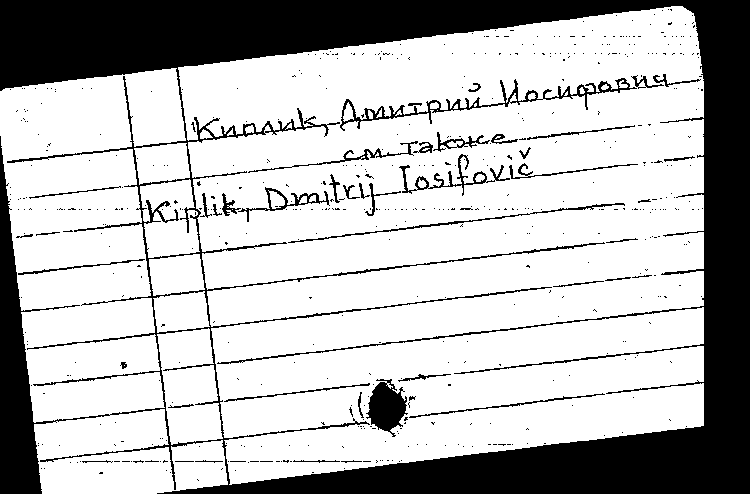 Киплик, Дмитрий Иосифович
см. также
Kiplik, Dmitrij Iosifovič